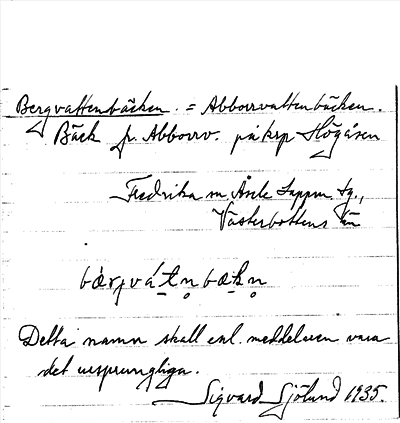 Bergvattenbäcken. = Abborrvattenbäcken.
Bäck fr. Abborrv. på krp Högåsen
Fredrika sn Åsele Lappm. tg.,
Västerbottens län
bæ̀rjvátn̥bækn̥
Detta namn skall enl. meddelaren vara
det ursprungliga.
Sigvard Sjölund 1935.